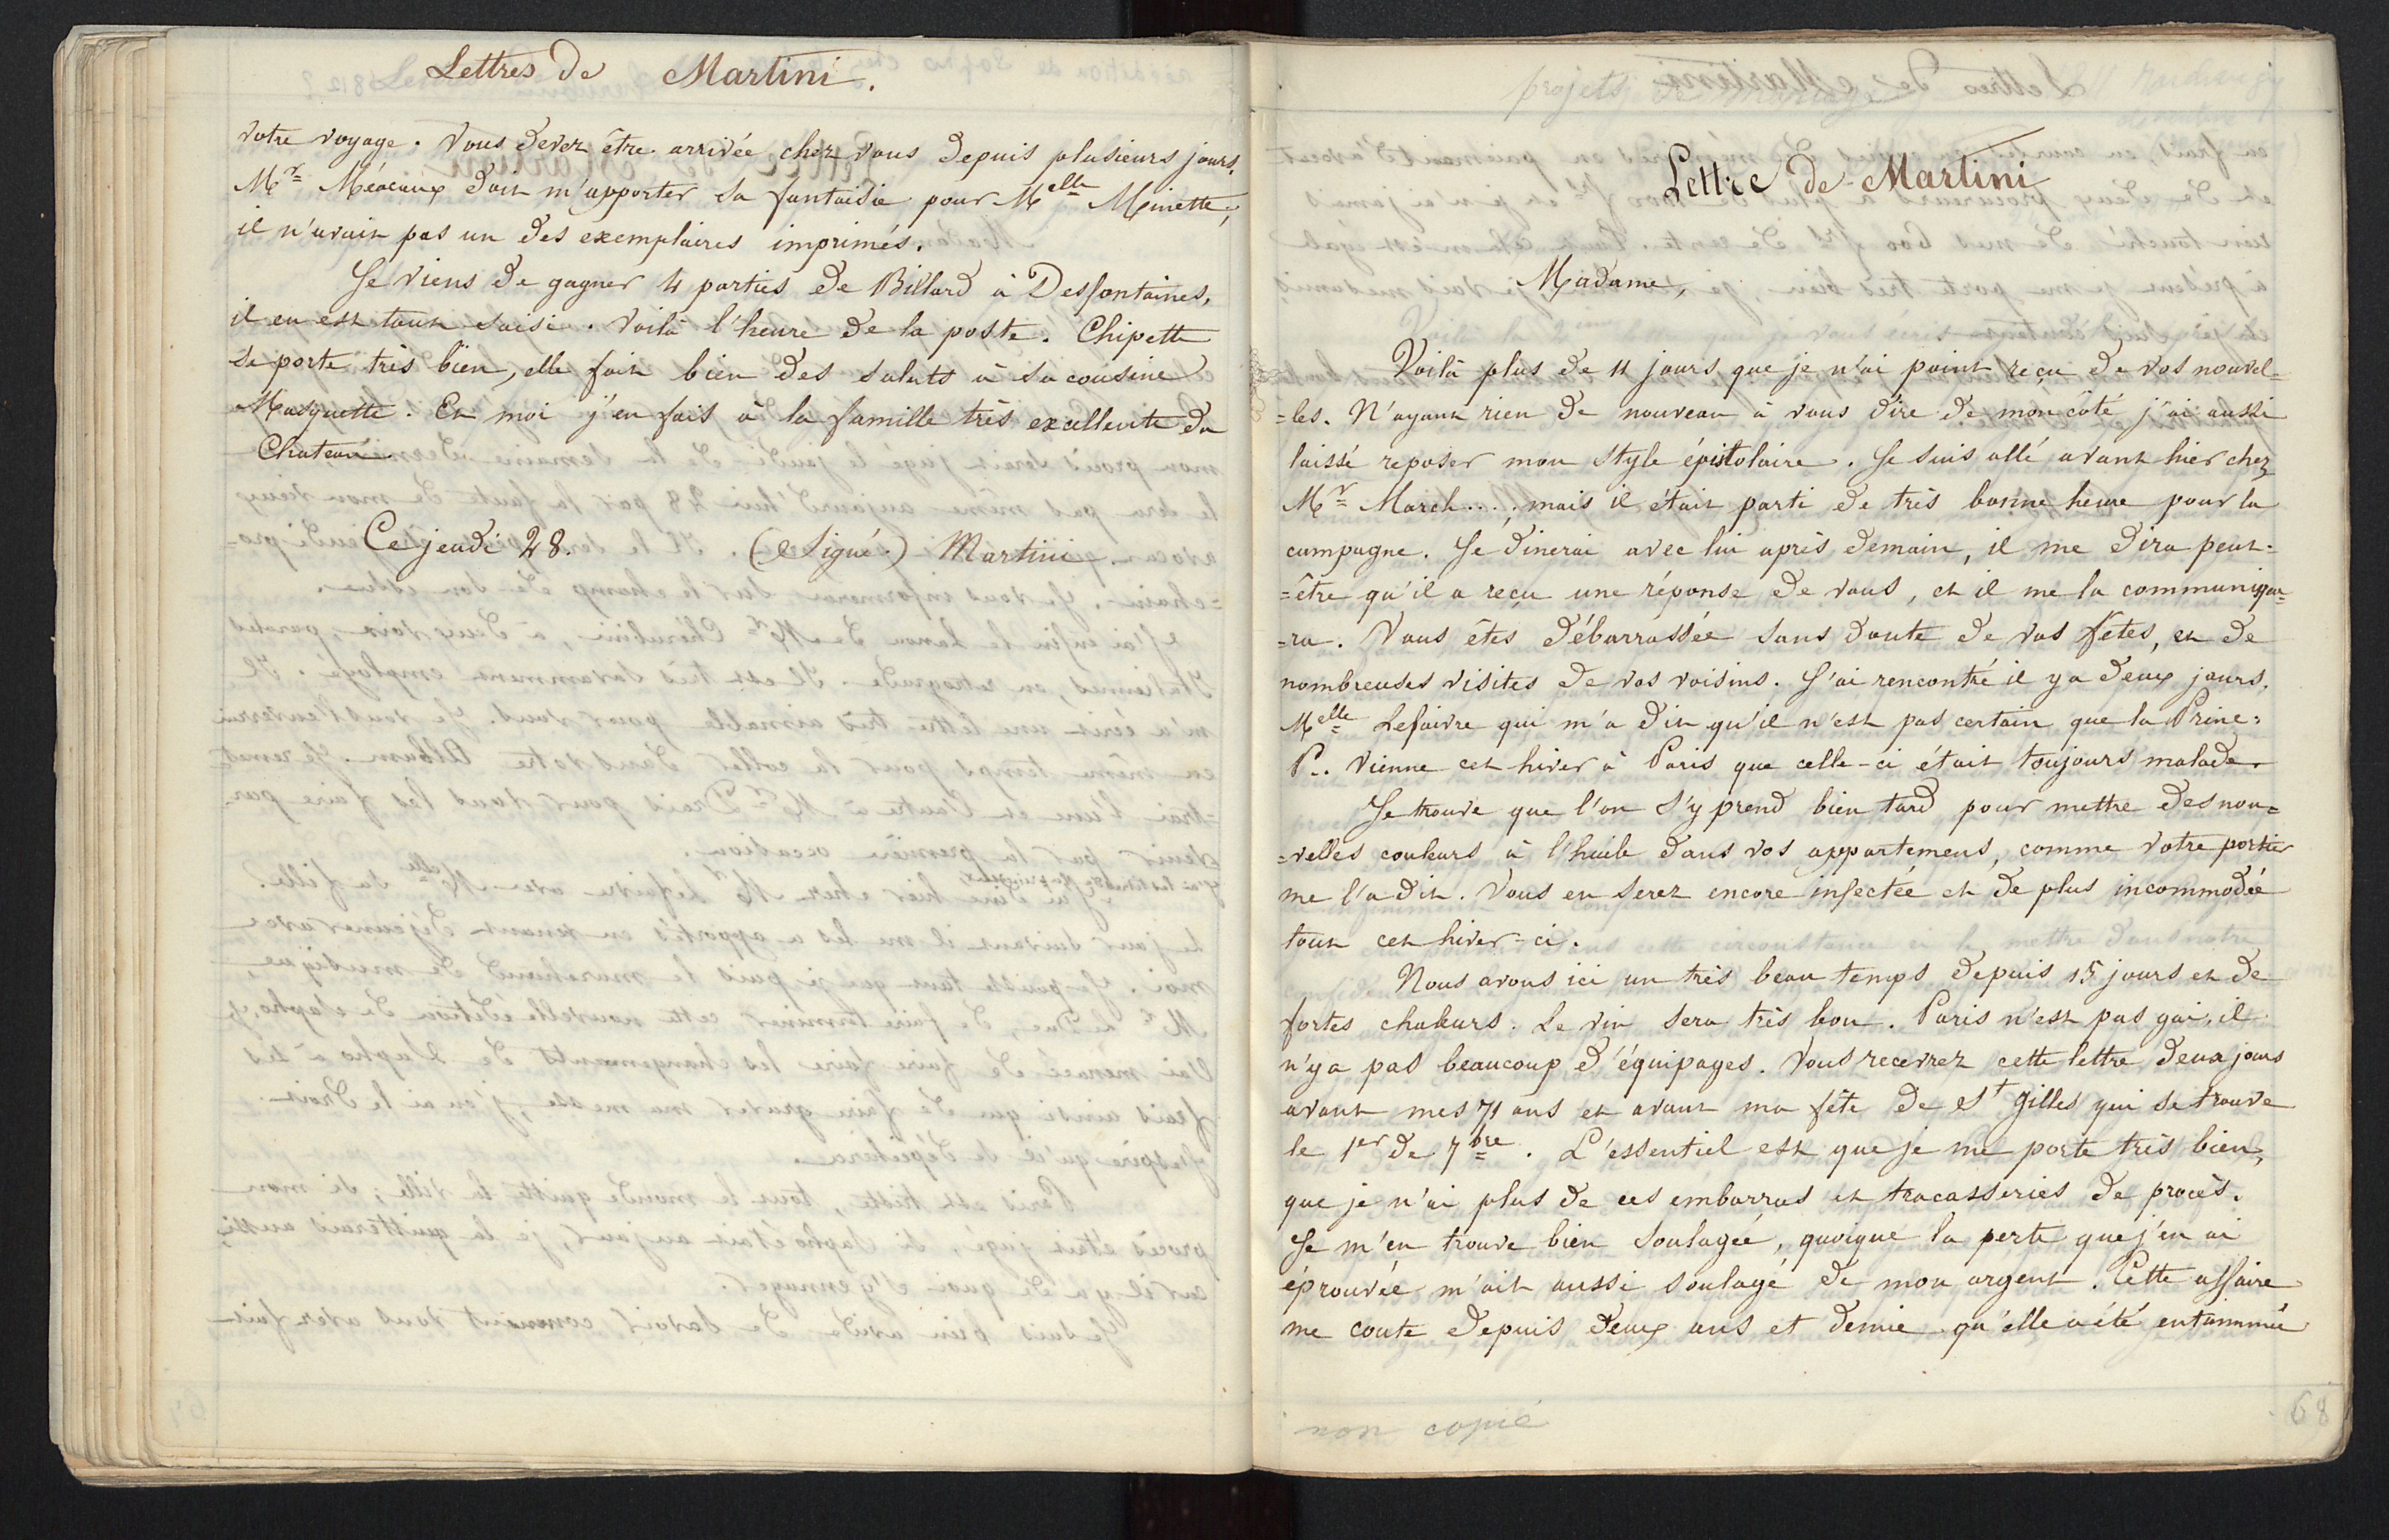 Lettres de Martini.
votre voyage. Vous devez être arrivée chez vous depuis plusieurs jours.
Mr Méreaux doit m'apporter sa fantaisie pour Melle Minette,
il n'avait pas un des exemplaires imprimés.
Je viens de gagner 4 parties de Billard à Desfontaines,
il en est tout saisi. Voilà l'heure de la poste. Chipette
se porte très bien, elle fait bien des saluts à sa cousine
Masquette. Et moi j'en fais à la famille très excellente du
Chateau.
Ce jeudi 28. (Signé.) Martini.
projets de mariage
Lettre de Martini
Madame,
Voilà plus de 11 jours que je n'ai point reçu de vos nouvel=
=les. N'ayant rien de nouveau à vous dire de mon côté j'ai aussi
laissé reposer mon style épistolaire. Je suis allé avant hier chez
Mr March...., mais il était parti de très bonne heure pour la
campagne. Je dinerai avec lui après demain, il me dira peut=
=être qu'il a reçu une réponse de vous, et il me la communique=
=ra. Vous êtes débarrassée sans doute de vos fêtes, et de
nombreuses visites de vos voisins. J'ai rencontré il y a deux jours,
Melle Lefaivre qui m'a dit qu'il n'est pas certain que la Princ:
P.. vienne cet hiver à Paris que celle-ci était toujours malade.
Je trouve que l'on s'y prend bien tard pour mettre des nou=
=velles couleurs à l'huile dans vos appartemens, comme votre portier
me l'a dit. Vous en serez encore infectée et de plus incommodée
tout cet hiver-ci.
Nous avons ici un très beau temps depuis 15 jours et de
fortes chaleurs. Le vin sera très bon. Paris n'est pas gai, il
n'y a pas beaucoup d'équipages. Vous recevrez cette lettre deux jours
avant mes 71 ans et avant ma fête de St Gilles qui se trouve
le 1er de 7bre. L'essentiel est que je me porte très bien,
que je n'ai plus de ces embarras et tracasseries de procès.
Je m'en trouve bien soulagée, quoique la perte que j'en ai
éprouvée m'ait aussi soulagé de mon argent. Cette affaire
me coute depuis deux ans et demie qu'elle a été entammée
non copié
68